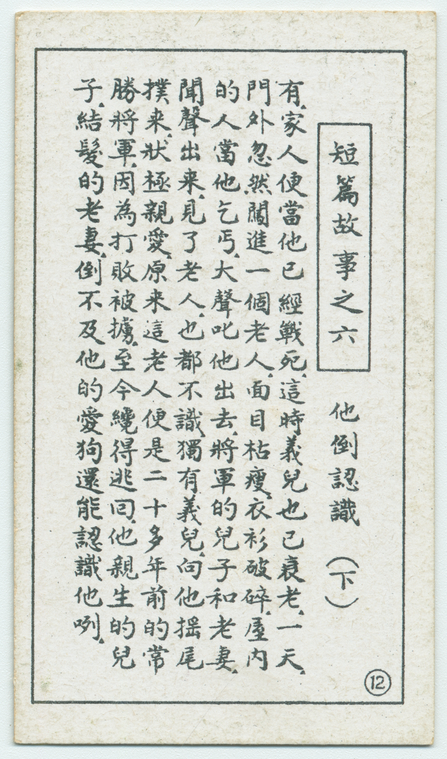 短篇故事之六
他倒認識（下）
有、家人便當他已經戰死、這時義兒也已衰老、一天、
門外忽然闖進一個老人、面目枯瘦、衣衫破碎、屋內
的人當他乞丐、大聲叱他出去、將軍的兒子和老妻、
聞聲出來、見了老人、也都不識、獨有義兒、向他搖尾
撲來、狀極親愛、原來這老人便是二十多年前的常
勝將軍、因為打敗被擄、至今纔得逃囘、他親生的兒
子、結髮的老妻、倒不及他的愛狗還能認識他咧、
12